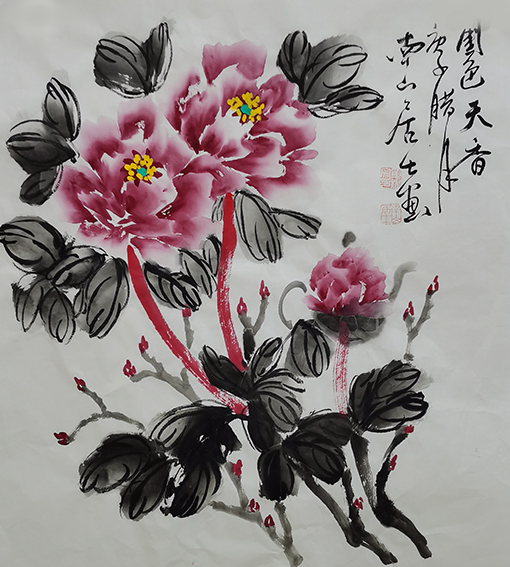 国色天香
庚子腊月
南山居士画